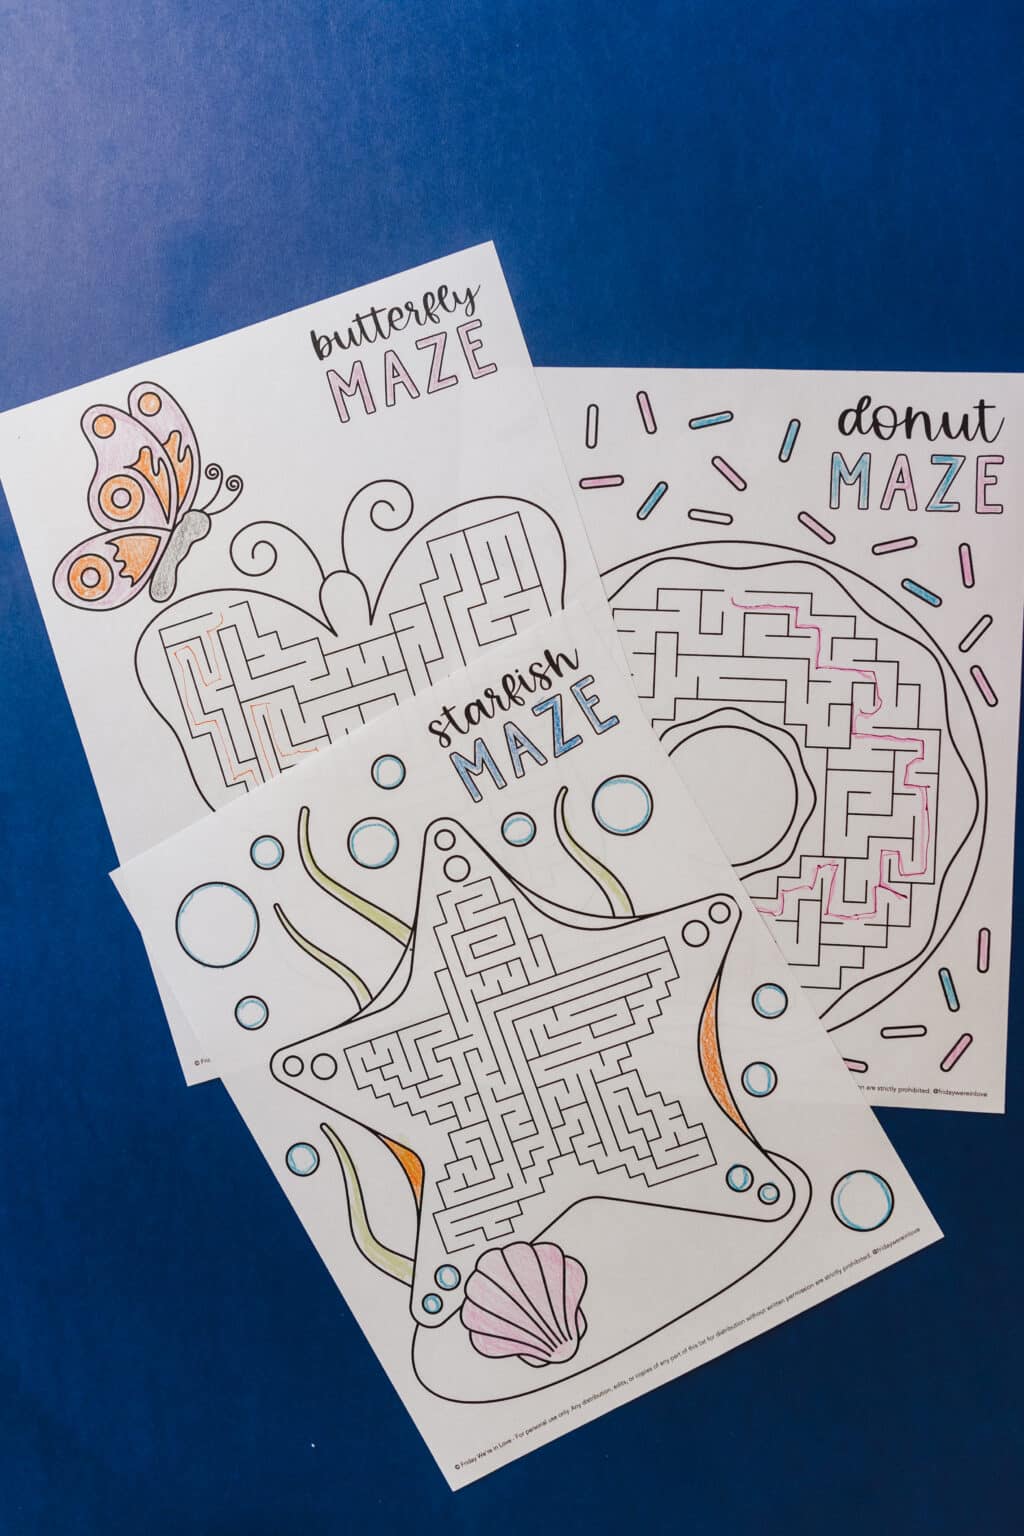 butterfly
MAZE
donut
MAZE
starfish
MAZE
© Frid
on are strictly prohibited. @fridaywereinlove
© Friday We're in Love - For personal use only. Any distribution, edits, or copies of any part of this list for distribution without written permission are strictly prohibited. @fridaywereinlove